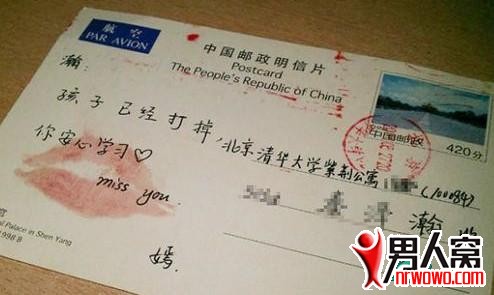 航 空
PAR AVION
中国邮政明信片
Postcard
The People's Republic of China
中国邮政
420分
瀚:
孩子已经打掉,
你安心学习♡
miss you.
嫣.
北京清华大学紫荆公寓
(100084)
瀚 收
宫
al Palace in Shen Yang
1998 B
男人窝
nrwowo.com